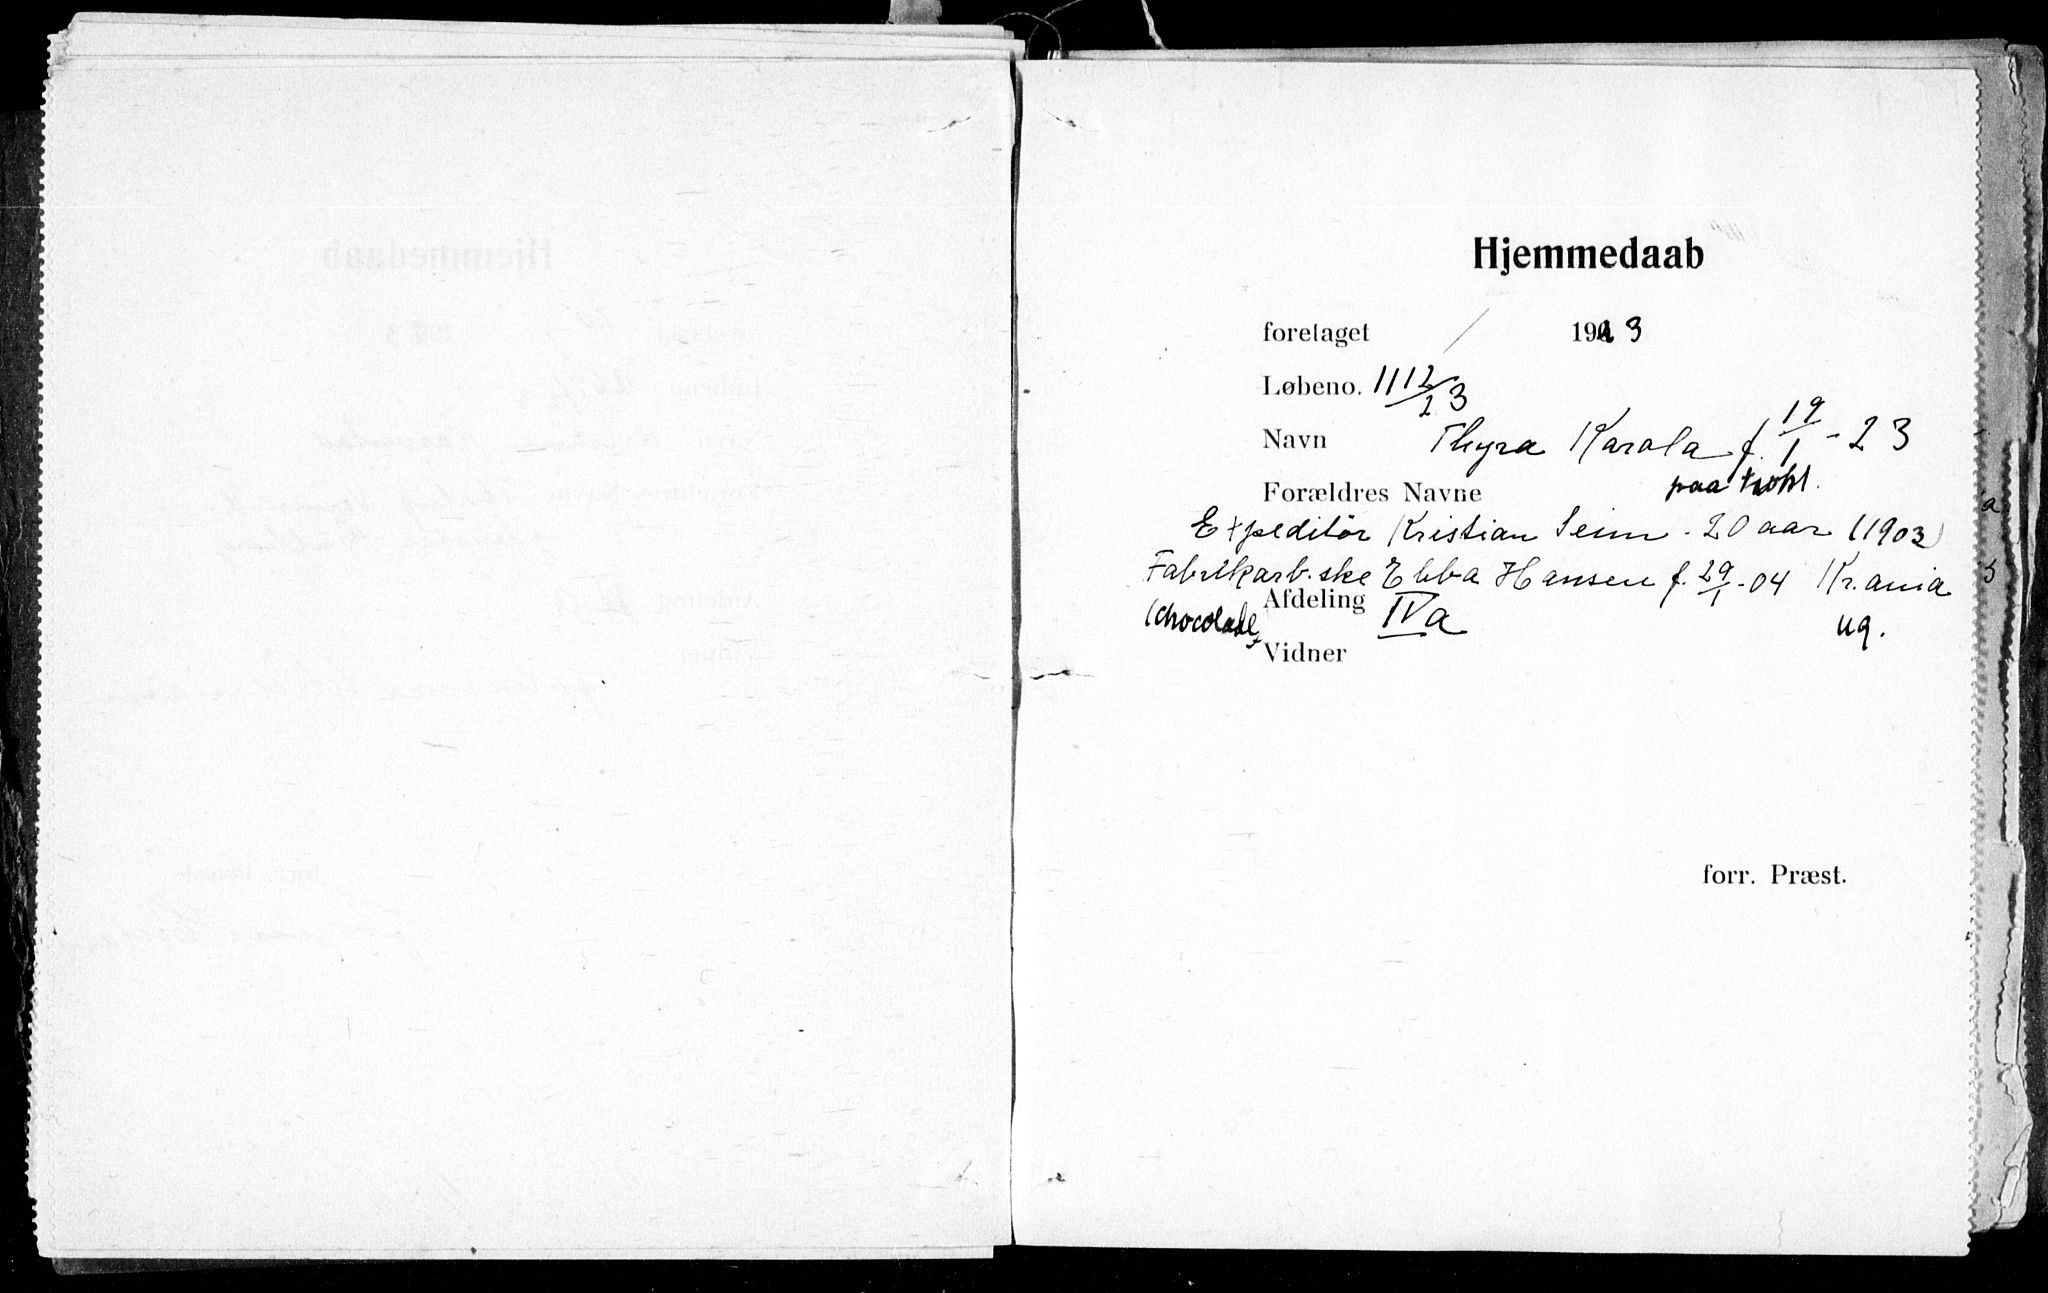 Hjemmedaab
foretaget / 1923
Løbeno. 1112/23
Navn Thyra Karola f. 19/1 - 23
Forældres Navne paa
Expeditör Kristian Seim - 20 aar (1903)
Fabrikarb.ske Ebba Hansen f. 29/1 - 04 Kr.ania
Afdeling IVa ug.
(Chocolade)
Vidner
forr. Præst.